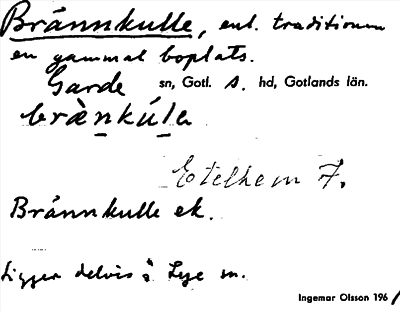 Brännkulle, enl. traditionen
en gammal boplats.
Garde sn, Gotl. S. hd, Gotlands län.
bræ̀nkúla
Etelhem 7.
Brännkulle ek.
Ligger delvis i Lye sn.
Ingemar Olsson 196/